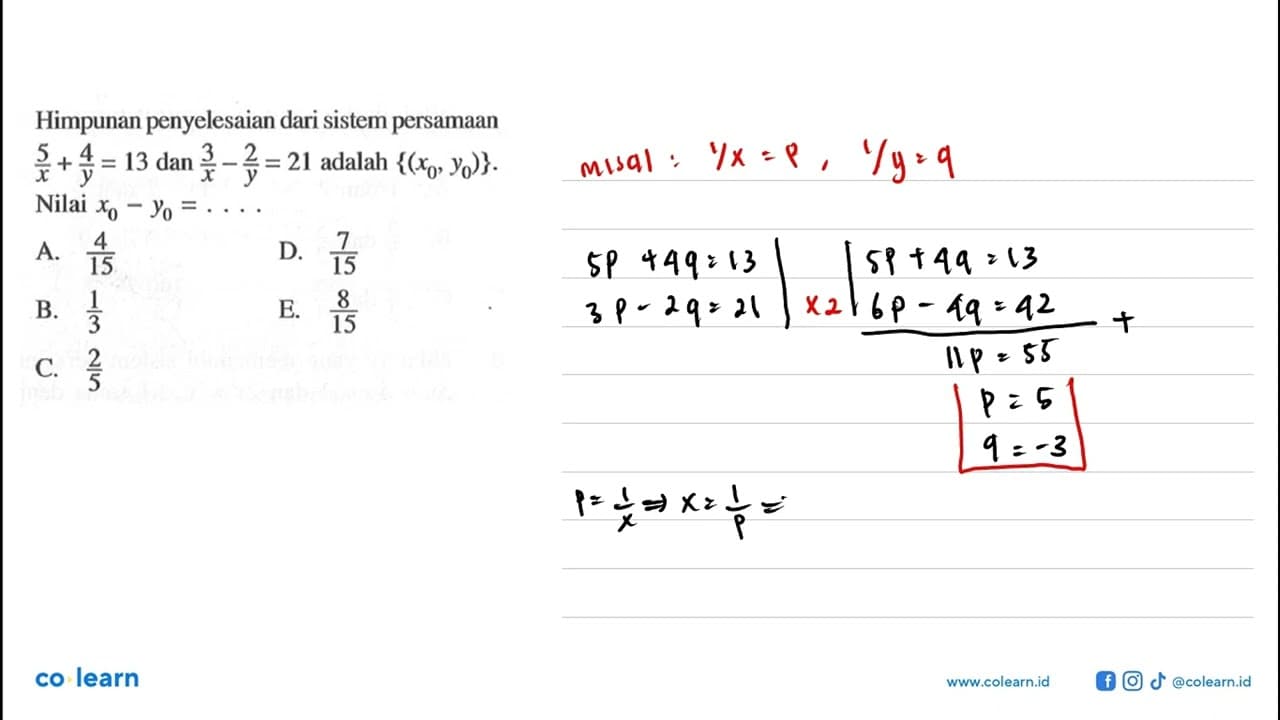 Himpunan penyelesaian dari sistem persamaan
5/x + 4/y = 13 dan 3/x − 2/y = 21 adalah {(x₀, y₀)}.
Nilai x₀ − y₀ = . . . .
A. 4/15
B. 1/3
C. 2/5
D. 7/15
E. 8/15
misal : 1/x = p , 1/y = q
5p + 4q = 13 | | 5p + 4q = 13
3p - 2q = 21 | x2 | 6p - 4q = 42 +
11p = 55
p = 5
q = -3
p = 1/x ⇒ x = 1/p =
co learn
www.colearn.id
@colearn.id